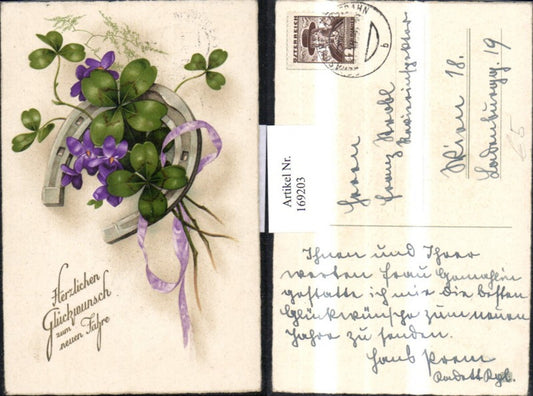 Herzlichen
Glückwunsch
zum
neuen Jahre
Artikel Nr.
169203
ÖSTERREICH
Herrn
Franz
Wien 18.
Ladenburgg. 19
Ihnen und Ihrer
werten Frau Gemahlin
gestatte ich mir die besten
Glückwünsche zum neuen
Jahre zu senden.
Hans Prem